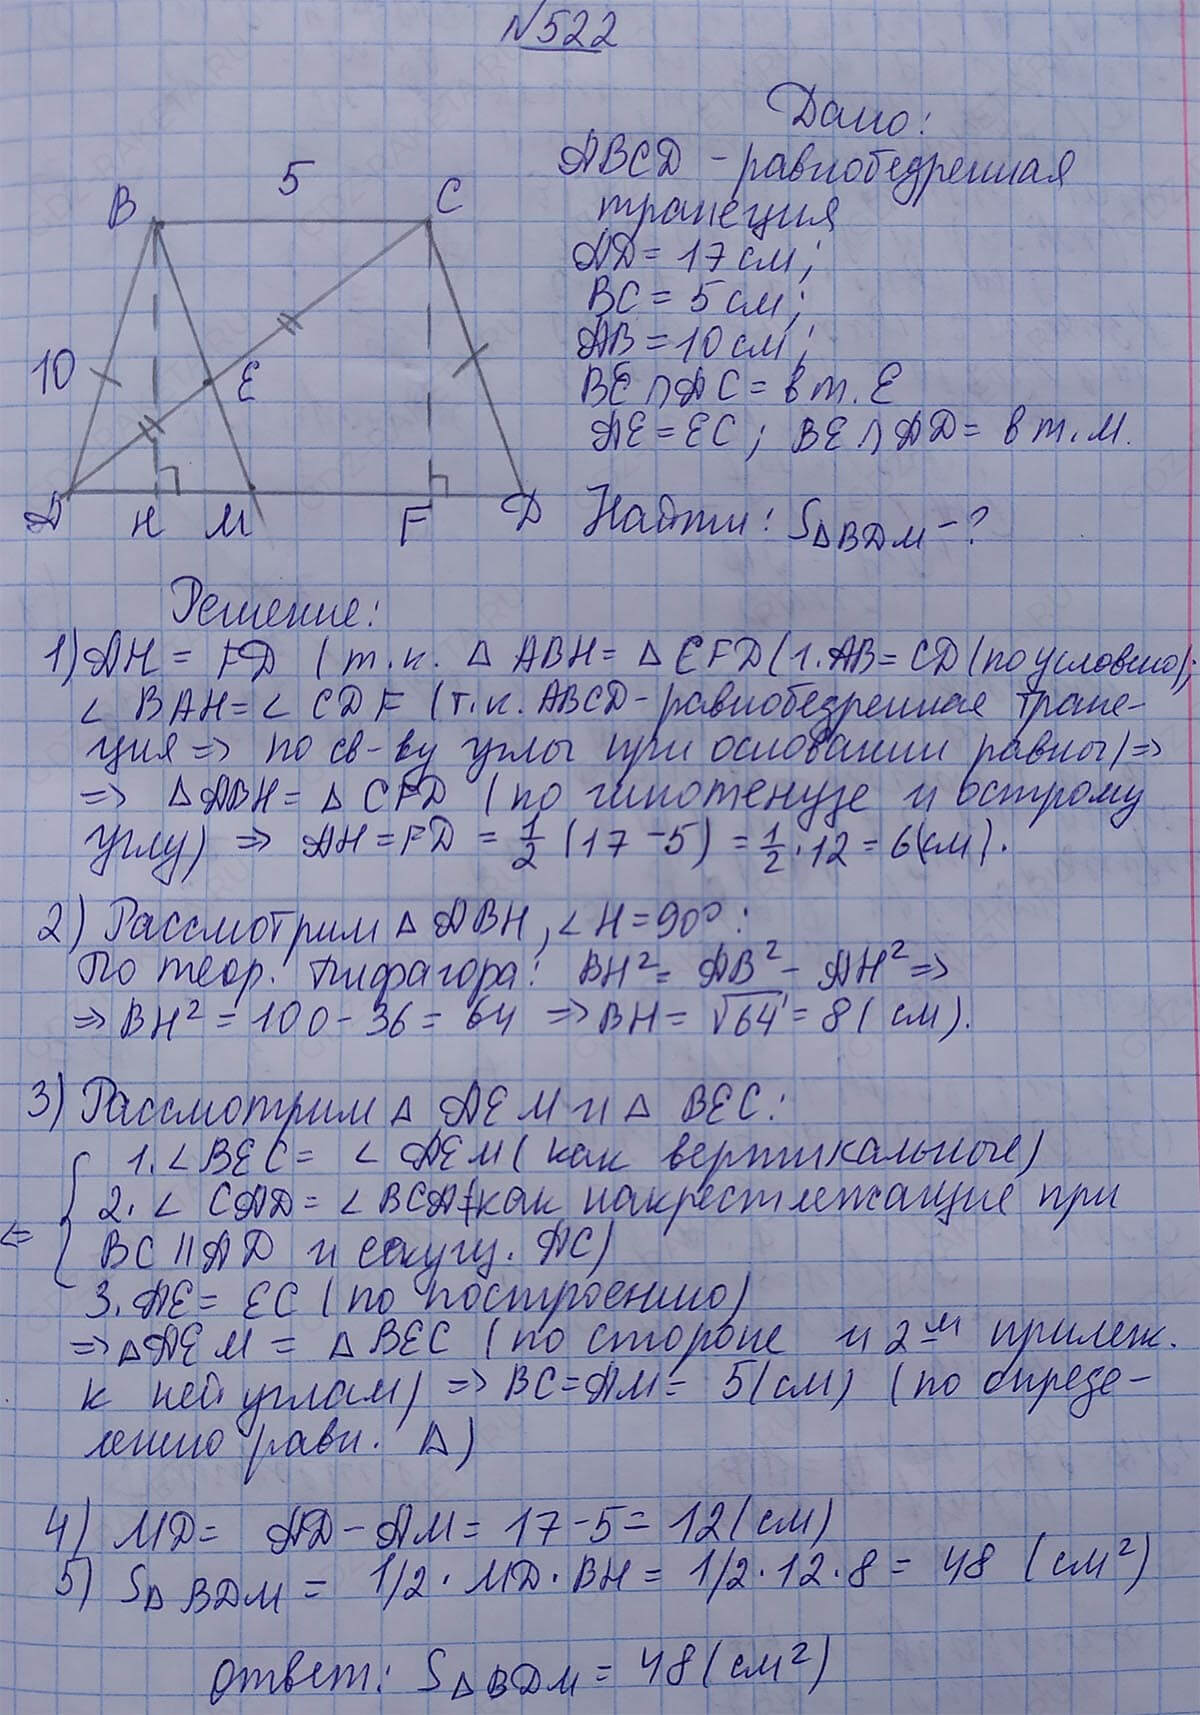 №522
Дано:
ABCD – равнобедренная
трапеция
AD = 17 см;
BC = 5 см;
AB = 10 см;
BE ∩ AC = в т. E
AE = EC; BE ∩ AD = в т. M.
Найти: S△BDM – ?
5
B C
10 E
A H M F D
Решение:
1) AH = FD (т.к. △ ABH = △ CFD (1. AB = CD (по условию);
∠ BAH = ∠ CDF (т.к. ABCD – равнобедренная трапе-
ция => по св-ву углы при основании равны) =>
=> △ ABH = △ CFD (по гипотенузе и острому
углу) => AH = FD = 1/2 (17 – 5) = 1/2 · 12 = 6 (см).
2) Рассмотрим △ ABH, ∠ H = 90°:
По теор. Пифагора: BH² = AB² – AH² =>
=> BH² = 100 – 36 = 64 => BH = √64 = 8 (см).
3) Рассмотрим △ AEM и △ BEC:
1. ∠ BEC = ∠ AEM (как вертикальные)
2. ∠ CAD = ∠ BCA (как накрест лежащие при
<= BC || AD и секущ. AC)
3. AE = EC (по построению)
=> △ AEM = △ BEC (по стороне и 2м прилеж.
к ней углам) => BC = AM = 5 (см) (по опреде-
лению равн. △)
4) MD = AD – AM = 17 – 5 = 12 (см)
5) S△ BDM = 1/2 · MD · BH = 1/2 · 12 · 8 = 48 (см²)
Ответ: S△BDM = 48 (см²)